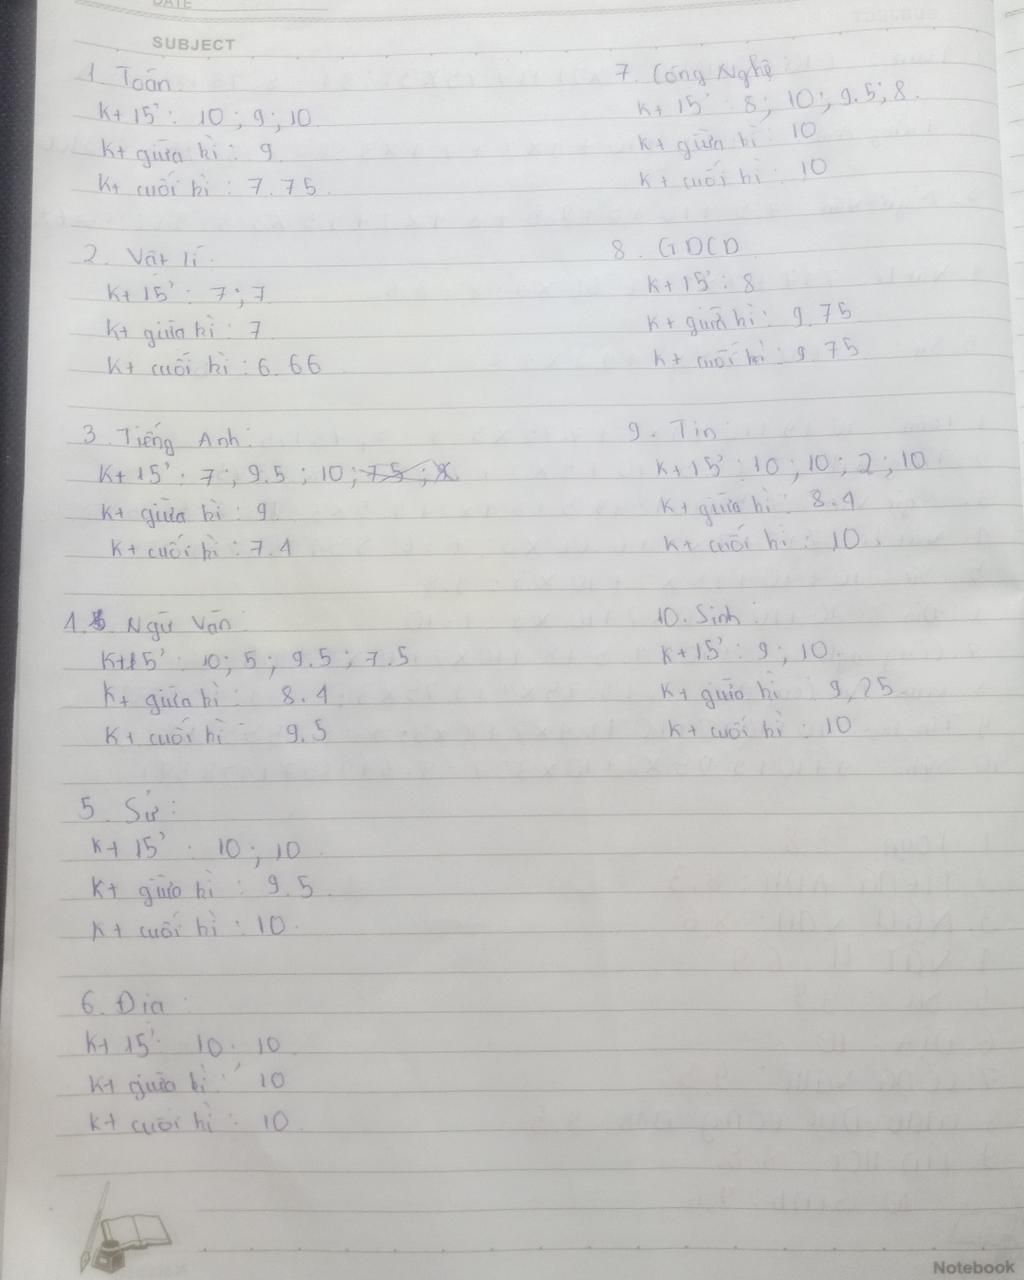 DATE
SUBJECT
1. Toán
Kt 15' : 10 ; 9 ; 10
Kt giữa kì : 9
Kt cuối kì : 7.75
2. Vật lí
Kt 15' : 7 ; 7
Kt giữa kì : 7
Kt cuối kì : 6.66
3. Tiếng Anh:
Kt 15' : 7 ; 9.5 ; 10 ; 7.5 ;
Kt giữa kì : 9
Kt cuối kì : 7.4
4. Ngữ Văn
Kt 15' : 10 ; 5 ; 9.5 ; 7.5
Kt giữa kì : 8.4
Kt cuối kì : 9.5
5. Sử :
Kt 15' : 10 ; 10
Kt giữa kì : 9.5
Kt cuối kì : 10
6. Địa :
Kt 15' 10 . 10
Kt giữa kì : 10
Kt cuối kì : 10
7. Công Nghệ
Kt 15' : 8 ; 10 ; 9.5 ; 8
Kt giữa kì : 10
Kt cuối kì : 10
8. GDCD
Kt 15' : 8
Kt giữa kì : 9.75
Kt cuối kì : 9.75
9. Tin
Kt 15' : 10 ; 10 ; 2 ; 10
Kt giữa kì : 8.4
Kt cuối kì : 10
10. Sinh :
Kt 15' : 9 ; 10
Kt giữa kì : 9,25
Kt cuối kì : 10
Notebook